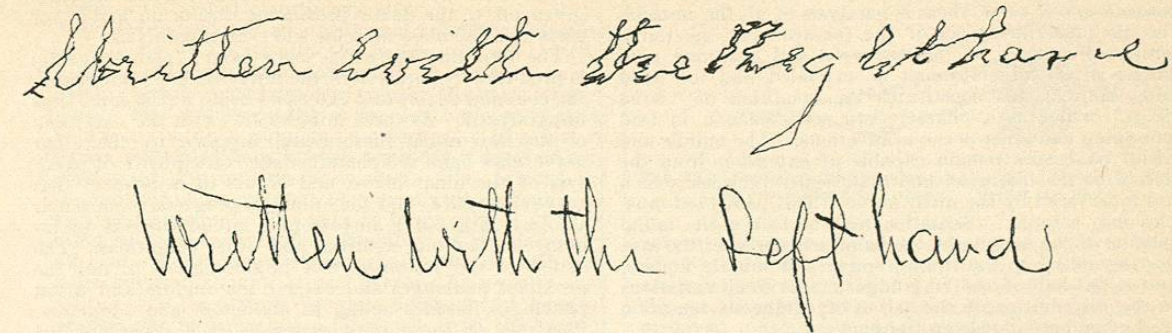 Written with the Right hand
Written with the Left hand